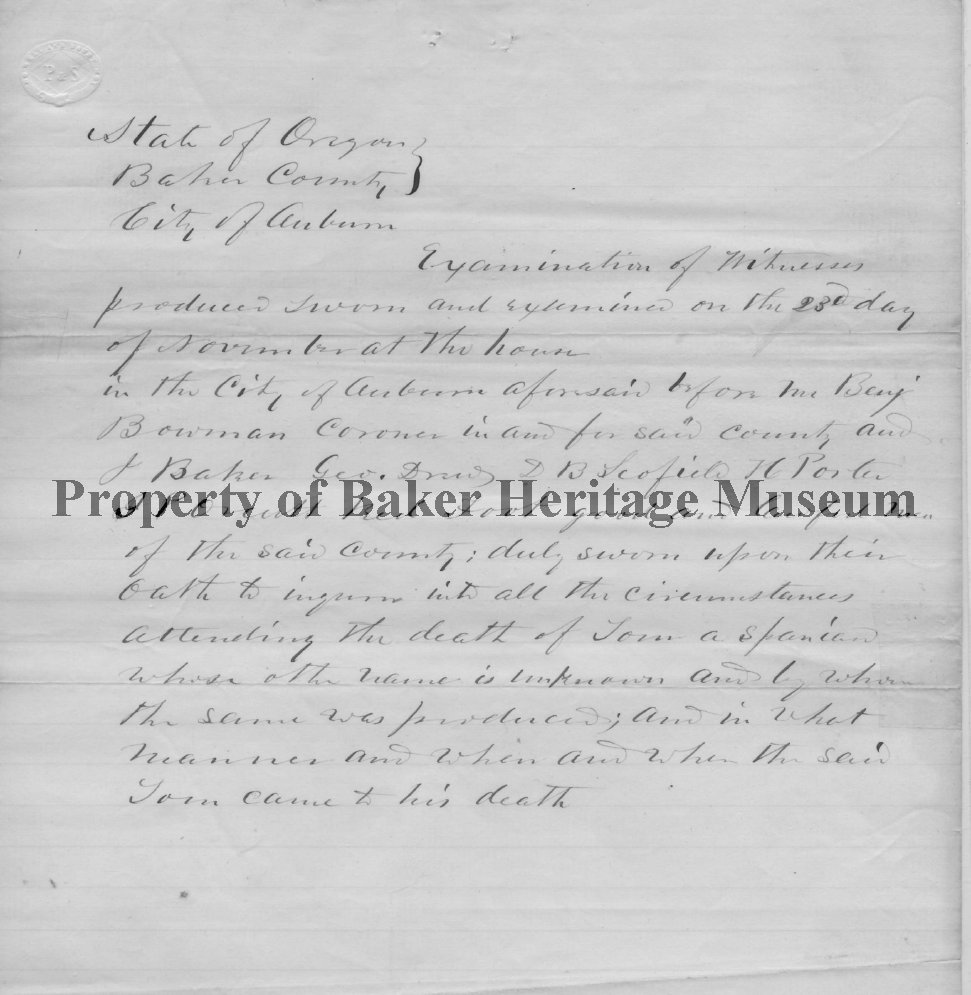 P & S
State of Oregon }
Baker County
City of Auburn
Examination of Witnesses
produced sworn and examined on the 23d day
of November at the house
in the City of Auburn aforesaid before me Benj
Bowman Coroner in and for said county and
J Baker Geo. Drew D B Scofield H Porter
Property of Baker Heritage Museum
good and men
of the said County; duly sworn upon their
Oath to inquire into all the circumstances
attending the death of Tom a Spaniard
whose othe name is unknown and by whom
the same was produced; and in what
manner and when and where the said
Tom came to his death